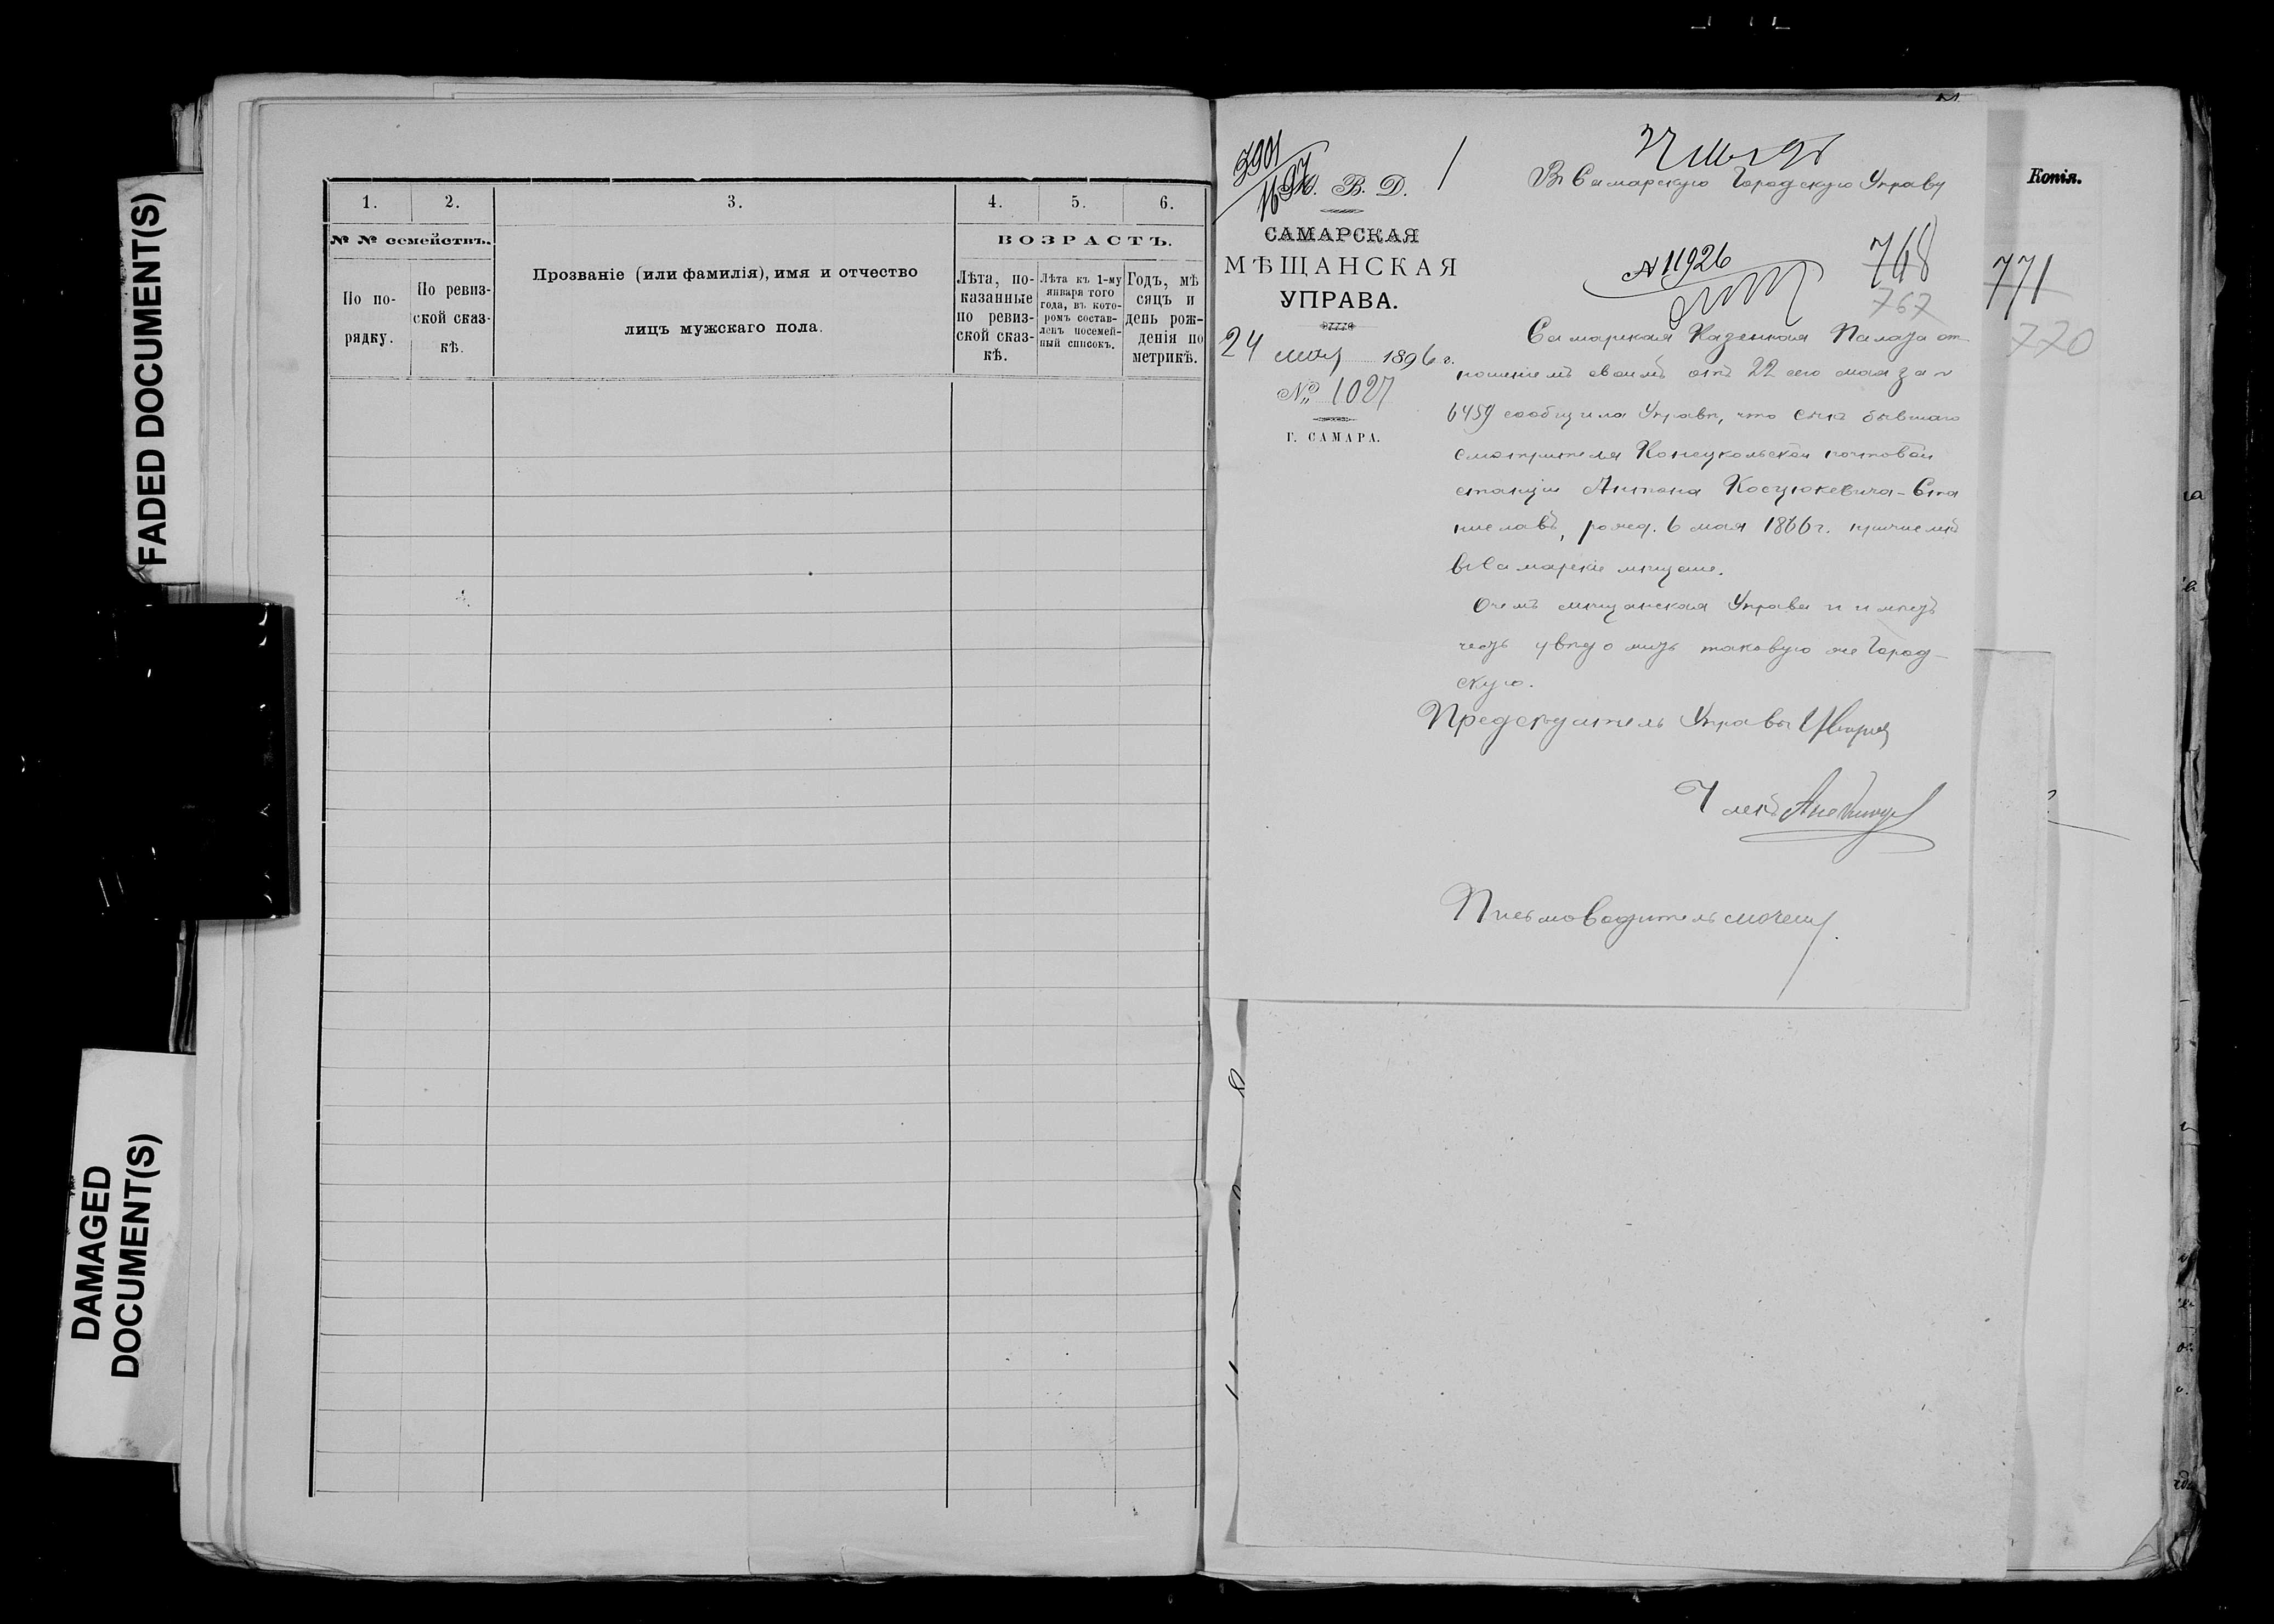 FADED DOCUMENT(S)
DAMAGED
DOCUMENT(S)
1.
2.
3.
4.
5.
6.
№ № семействъ.
ВОЗРАСТЪ.
По по-
рядку.
По ревиз-
ской сказ-
кѣ.
Прозваніе (или фамилія), имя и отчество
лицъ мужскаго пола.
Лѣта, по-
казанные
по ревиз-
ской сказ-
кѣ.
Лѣта къ 1-му
января того
года, въ кото-
ромъ состав-
ленъ посемей-
ный списокъ.
Годъ, мѣ
сяцъ и
день рож-
денія по
метрикѣ.
3901
В. Д.
САМАРСКАЯ
МѢЩАНСКАЯ
УПРАВА.
24 мая 1896 г.
№ 1027
Г. САМАРА.
Въ Самарскую Городскую Управу
11926
768
767
Самарская Казенная Палата от-
ношеніемъ своимъ отъ 22 сего мая за №
6459 сообщила Управѣ, что сынъ бывшаго
смотрителя почтовой
станціи Антона Косцюкевича-Ста
ниславъ, рожд. 6 мая 1866 г. причисленъ
въ Самарскіе мѣщане.
О чемъ мѣщанская Управа и имѣетъ
честь увѣдомить таковую же Город-
скую.
Предсѣдатель Управы
Членъ
Письмоводитель
Копія.
771
770